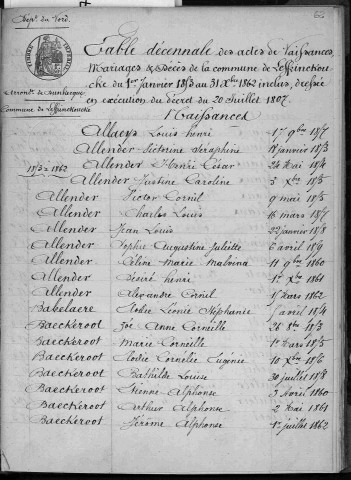 Dép.t du Nord.
Table décennale des actes de Naissances,
Mariages & Décès de la commune de Leffrinckou-
cke du 1er Janvier 1853 au 31 Xbre 1862 inclus, dressée
en exécution du décret du 20 Juillet 1807.
Arrondt de Dunkerque
Commune de Leffrinckoucke
Naissances
1853 = 1862
Allaeys Louis henri 17 9bre 1857
Allender Victorine Séraphine 18 janvier 1853
Allender Henri César 24 Mai 1854
Allender Justine Caroline 3 Xbre 1855
Allender Victor Cornil 9 mai 1855
Allender Charles Louis 16 mars 1857
Allender Jean Louis 22 janvier 1858
Allender Sophie Augustine Juliette 6 avril 1859
Allender Céline Marie Malvina 11 9bre 1860
Allender Désiré henri 1er Xbre 1861
Allender Alexandre Cornil 15 Mars 1862
Babelaere Elodie Léonie Stéphanie avril 1854
Baeckeroot Zoé Anne Corneille 26 8bre 1853
Baeckeroot Marie Corneille 1er Mars 1855
Baeckeroot Elodie Cornélie Eugénie 10 Xbre 1856
Baeckeroot Bathilde Louise 30 juillet 1858
Baeckeroot Etienne Alphonse 3 Avril 1860
Baeckeroot Arthur Alphonse 2 Mai 1861
Baeckeroot Jérôme Alphonse 1er juillet 1862